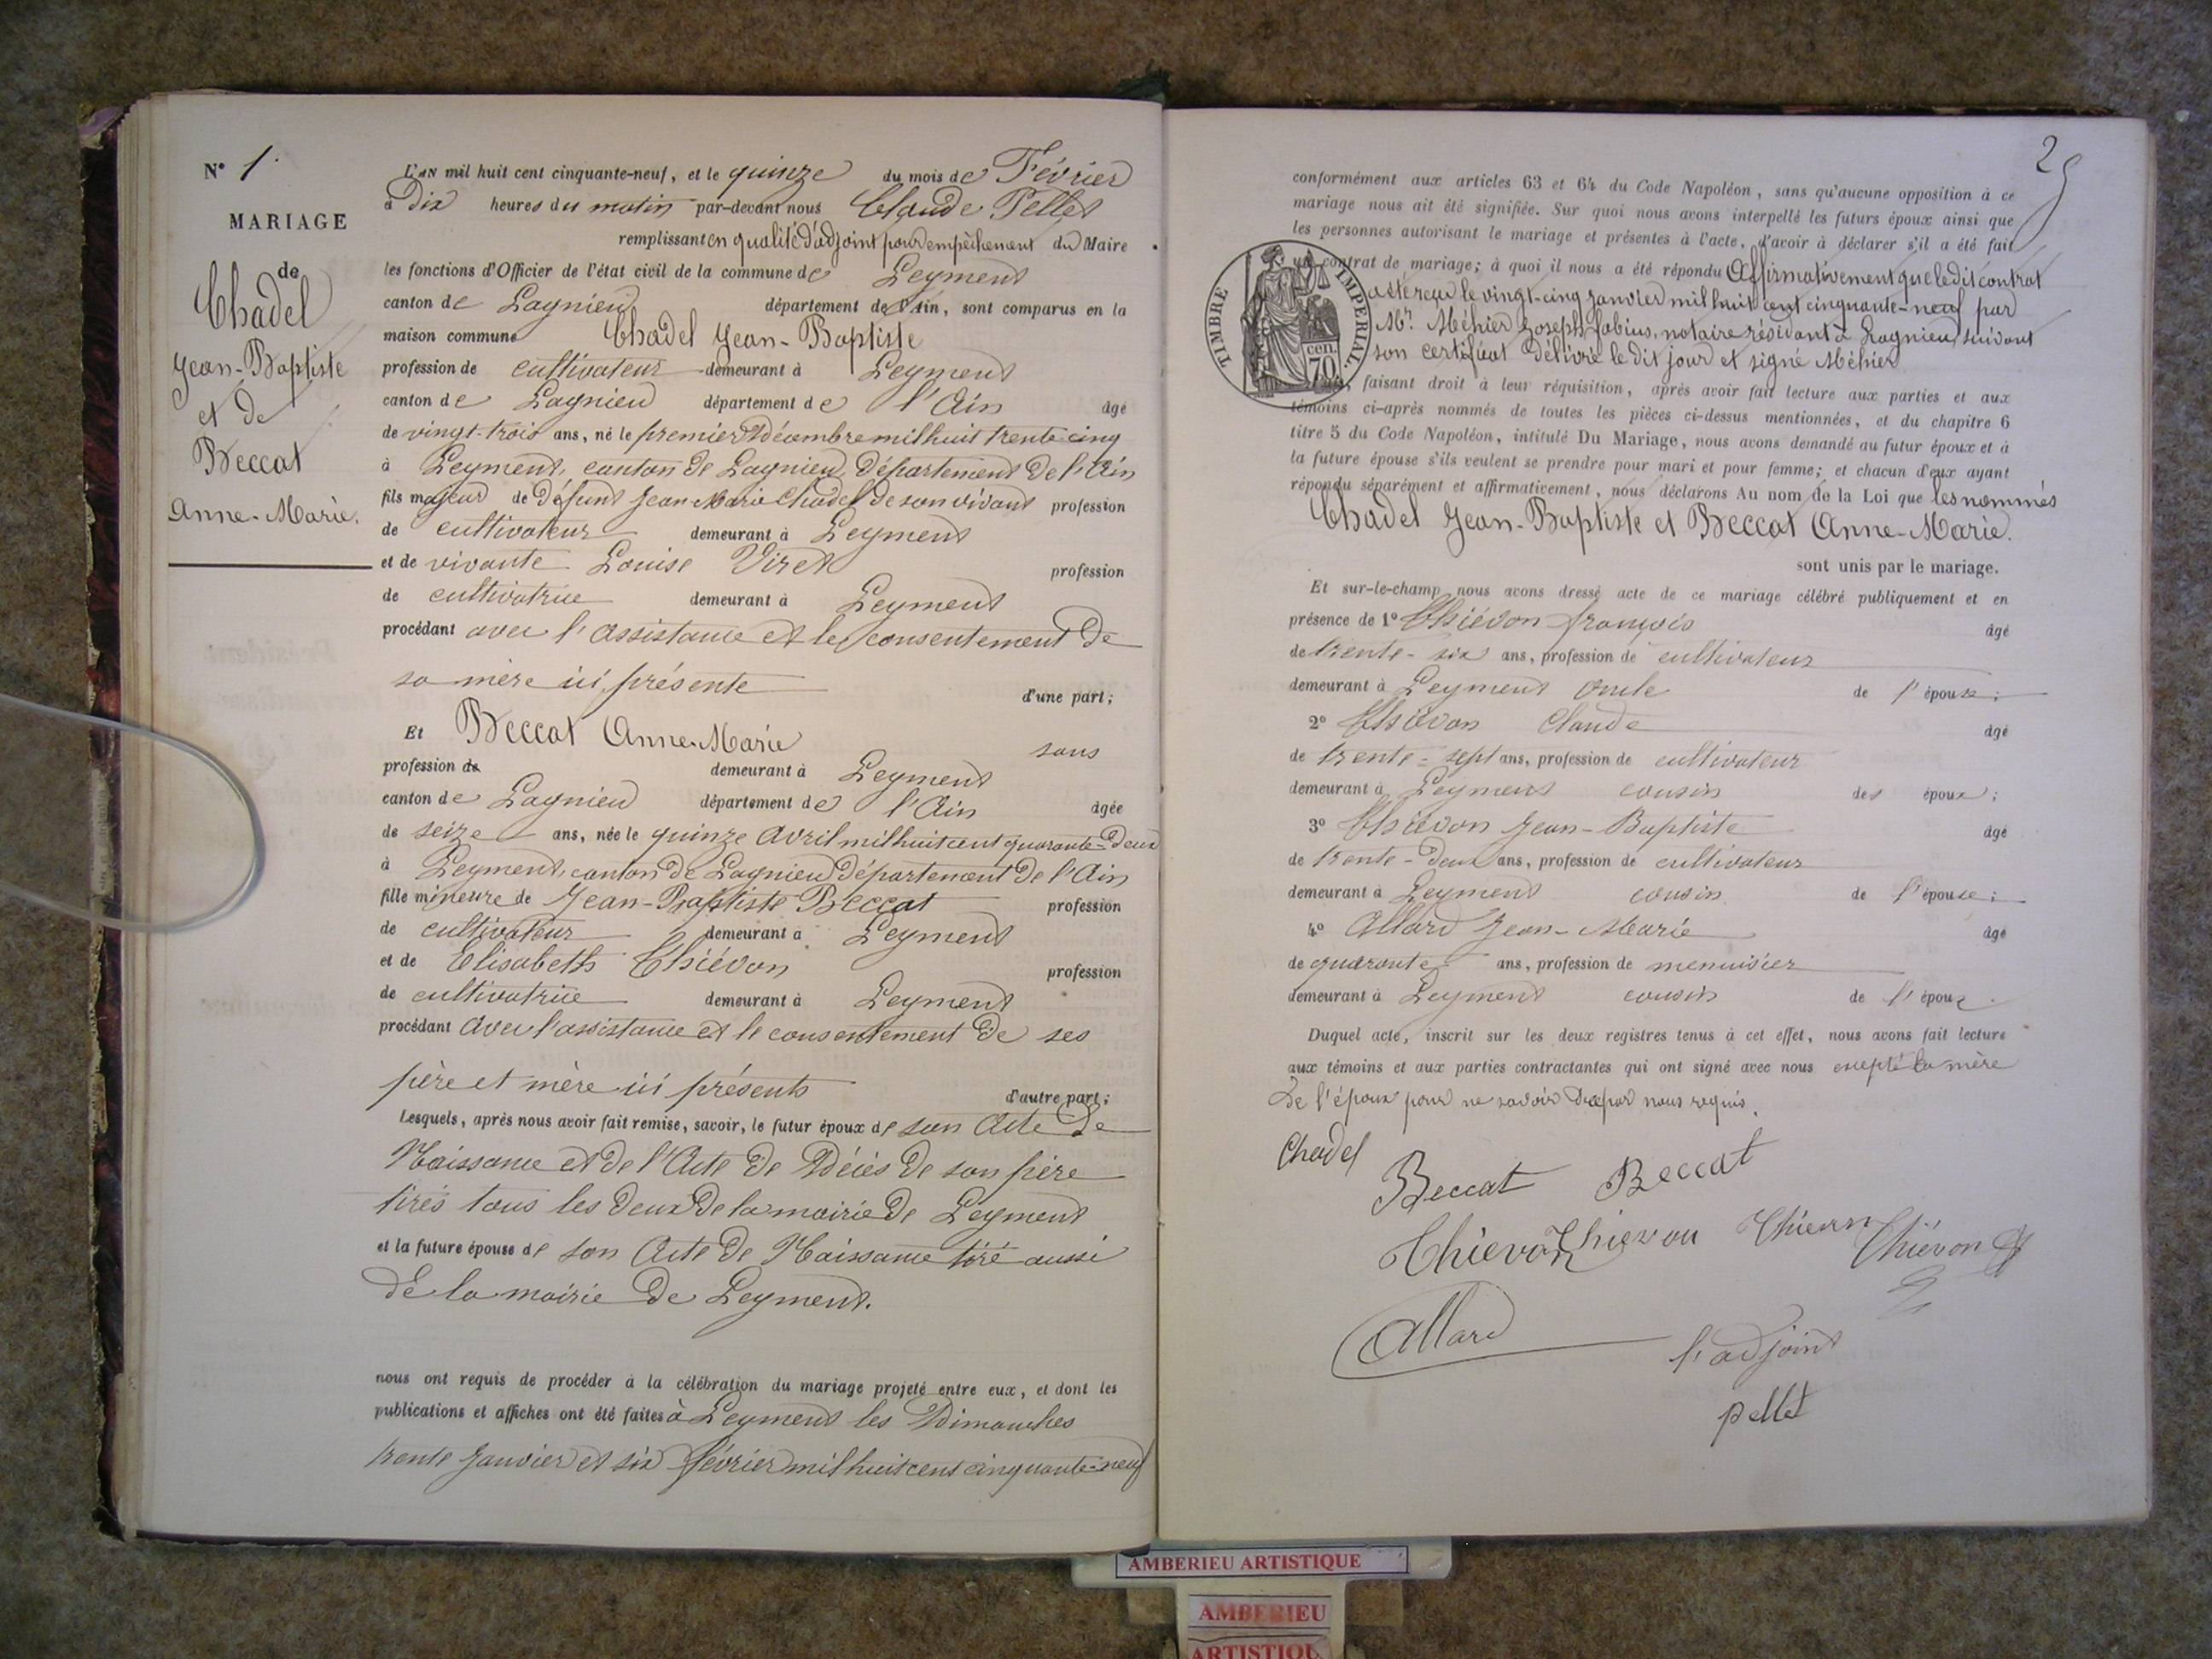 N° 1.
MARIAGE
de
Chadel
Jean-Baptiste
et de
Beccat
Anne-Marie.
L'AN mil huit cent cinquante-neuf, et le quinze du mois de Février
à Dix heures du matin par-devant nous Claude Pellet
remplissant en qualité d'adjoint pour empêchement du Maire
les fonctions d'Officier de l'état civil de la commune de Leyment
canton de Lagnieu département de l'Ain, sont comparus en la
maison commune Chadel Jean-Baptiste
profession de cultivateur demeurant à Leyment
canton de Lagnieu département de l'Ain âgé
de vingt-trois ans, né le premier Décembre mil huit trente-cinq
à Leyment, canton de Lagnieu, Département de l'Ain
fils majeur de Défunt Jean Marie Chadel de son vivant profession
de cultivateur demeurant à Leyment
et de vivante Louise Viret profession
de cultivatrice demeurant à Leyment
procédant avec l'assistance et le consentement de
sa mère ici présente d'une part;
Et Beccat Anne-Marie sans
profession de demeurant à Leyment
canton de Lagnieu département de l'Ain âgée
de seize ans, née le quinze Avril mil huit cent quarante-Deux
à Leyment, canton de Lagnieu Département de l'Ain
fille mineure de Jean-Baptiste Beccat profession
de cultivateur demeurant à Leyment
et de Elisabeth Thiévon profession
de cultivatrice demeurant à Leyment
procédant avec l'assistance et le consentement de ses
père et mère ici présents d'autre part;
Lesquels, après nous avoir fait remise, savoir, le futur époux de son Acte de
Naissance et de l'Acte de Décès de son père
tirés tous les Deux de la mairie de Leyment
et la future épouse de son Acte de Naissance tiré aussi
de la mairie de Leyment.
nous ont requis de procéder à la célébration du mariage projeté entre eux, et dont les
publications et affiches ont été faites à Leyment les Dimanches
trente Janvier et six février mil huit cent cinquante-neuf
29
conformément aux articles 63 et 64 du Code Napoléon, sans qu'aucune opposition à ce
mariage nous ait été signifiée. Sur quoi nous avons interpellé les futurs époux ainsi que
les personnes autorisant le mariage et présentes à l'acte, d'avoir à déclarer s'il a été fait
un contrat de mariage; à quoi il nous a été répondu Affirmativement que le dit contrat
a été reçu le vingt-cinq Janvier mil huit cent cinquante-neuf par
Mr. Méhier Joseph fabius, notaire résidant à Lagnieu, suivant
son certificat Délivré le dit jour et signé Méhier
TIMBRE IMPERIAL.
70 cen.
faisant droit à leur réquisition, après avoir fait lecture aux parties et aux
témoins ci-après nommés de toutes les pièces ci-dessus mentionnées, et du chapitre 6
titre 5 du Code Napoléon, intitulé Du Mariage, nous avons demandé au futur époux et à
la future épouse s'ils veulent se prendre pour mari et pour femme; et chacun d'eux ayant
répondu séparément et affirmativement, nous déclarons Au nom de la Loi que les nommés
Chadel Jean-Baptiste et Beccat Anne-Marie.
sont unis par le mariage.
Et sur-le-champ nous avons dressé acte de ce mariage célébré publiquement et en
présence de 1° Thiévon françois âgé
de trente-six ans, profession de cultivateur
demeurant à Leyment oncle de l'épouse;
2° Thiévon Claude âgé
de trente-sept ans, profession de cultivateur
demeurant à Leyment cousin des époux;
3° Thiévon Jean-Baptiste âgé
de trente-Deux ans, profession de cultivateur
demeurant à Leyment cousin de l'épouse;
4° Allard Jean-Marie âgé
de quarante ans, profession de menuisier
demeurant à Leyment cousin de l'époux.
Duquel acte, inscrit sur les deux registres tenus à cet effet, nous avons fait lecture
aux témoins et aux parties contractantes qui ont signé avec nous excepté la mère
De l'époux pour ne savoir de ce par nous requis.
Chadel
Beccat Beccat
Thiévon Thievon Thievon Thiévon
Allard
l'adjoint
pellet
AMBERIEU ARTISTIQUE
AMBERIEU
ARTISTIQU